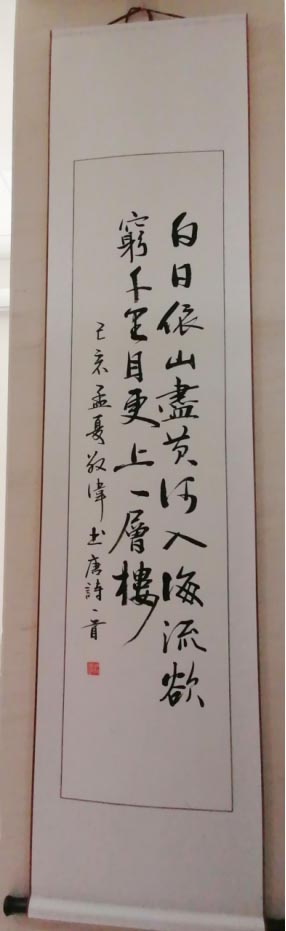 白日依山盡黄河入海流欲
窮千里目更上一層樓
己亥孟夏敬偉书唐詩一首